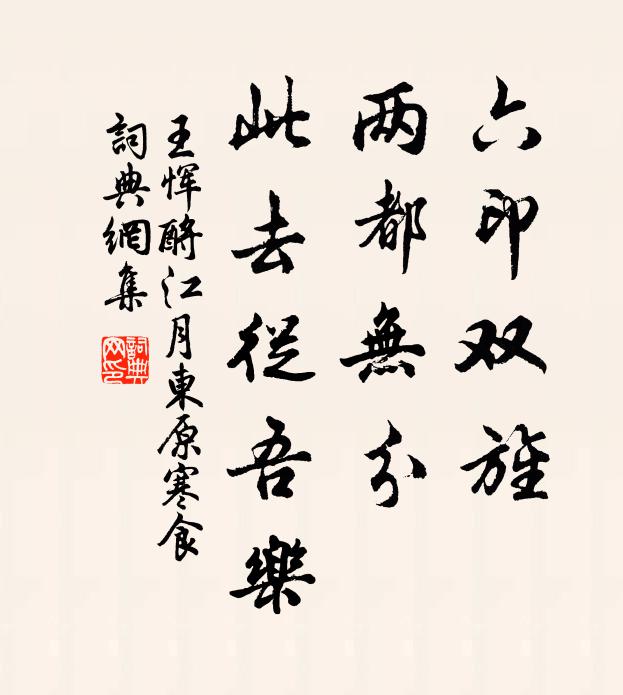 六印双旌
两都無分
此去從吾樂
王恽酹江月東原寒食
詞典網集
詞典网印